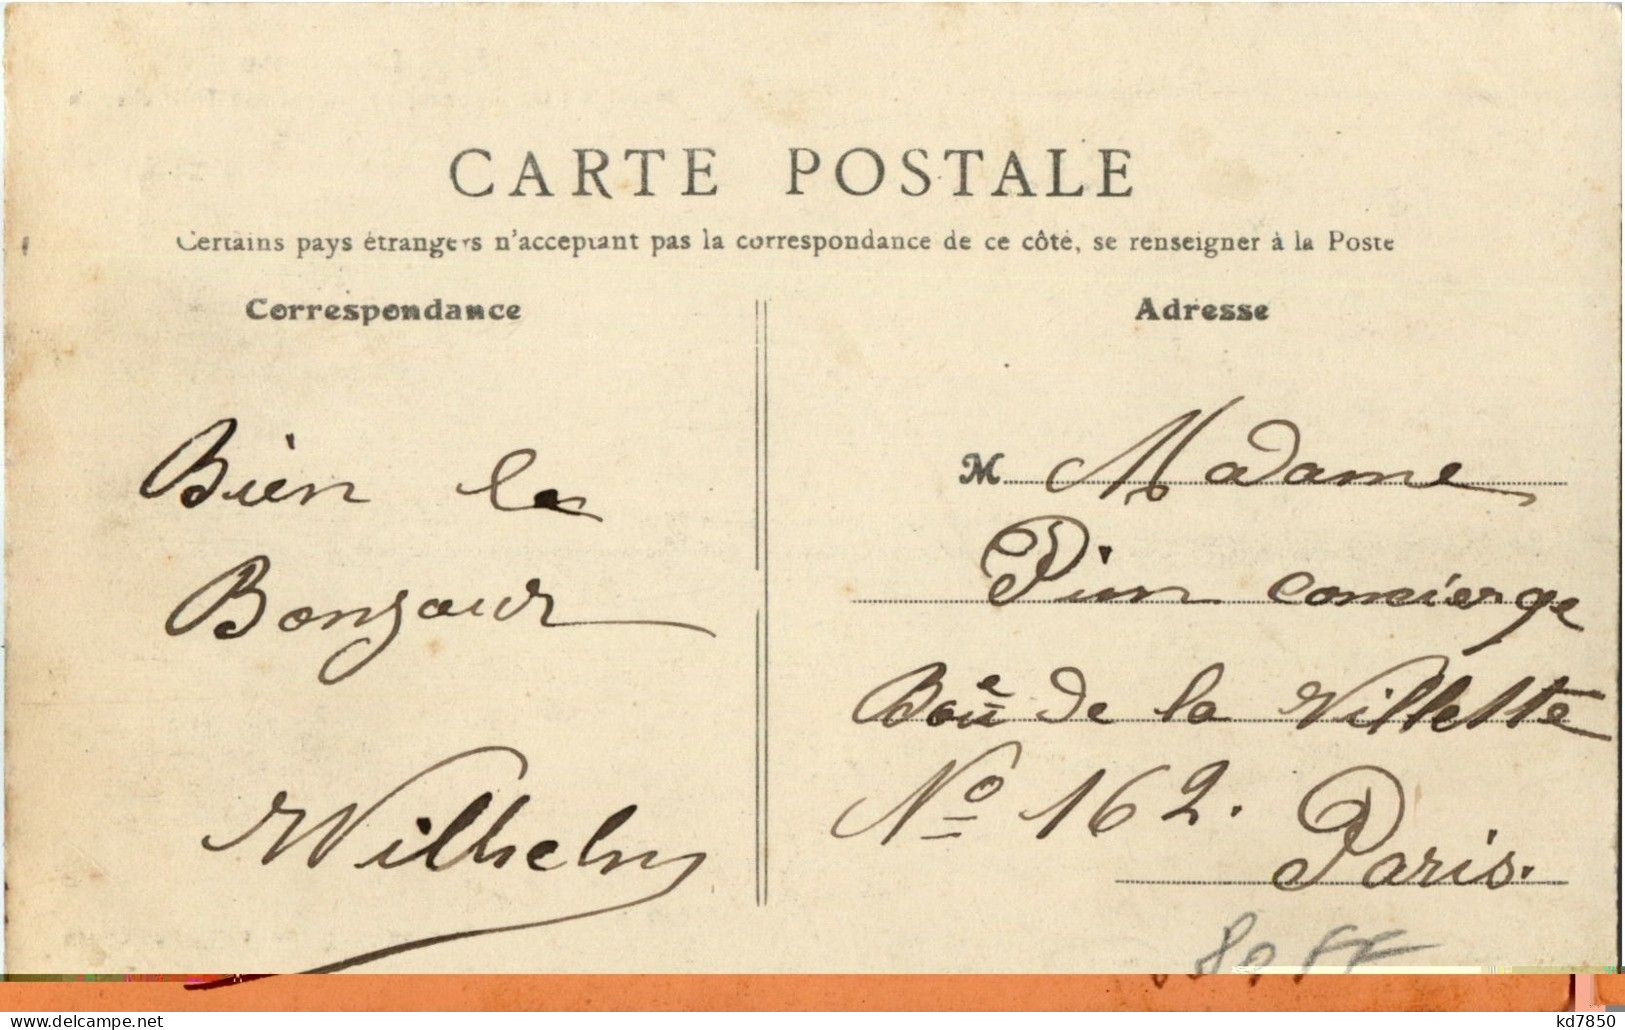 CARTE POSTALE
Certains pays étrangers n'acceptant pas la correspondance de ce côté, se renseigner à la Poste
Correspondance
Adresse
Bien le
Bonjour
Wilhelm
M. Madame
concierge
Boue de la Villette
No 162.
Paris.
kd7850
www.delcampe.net